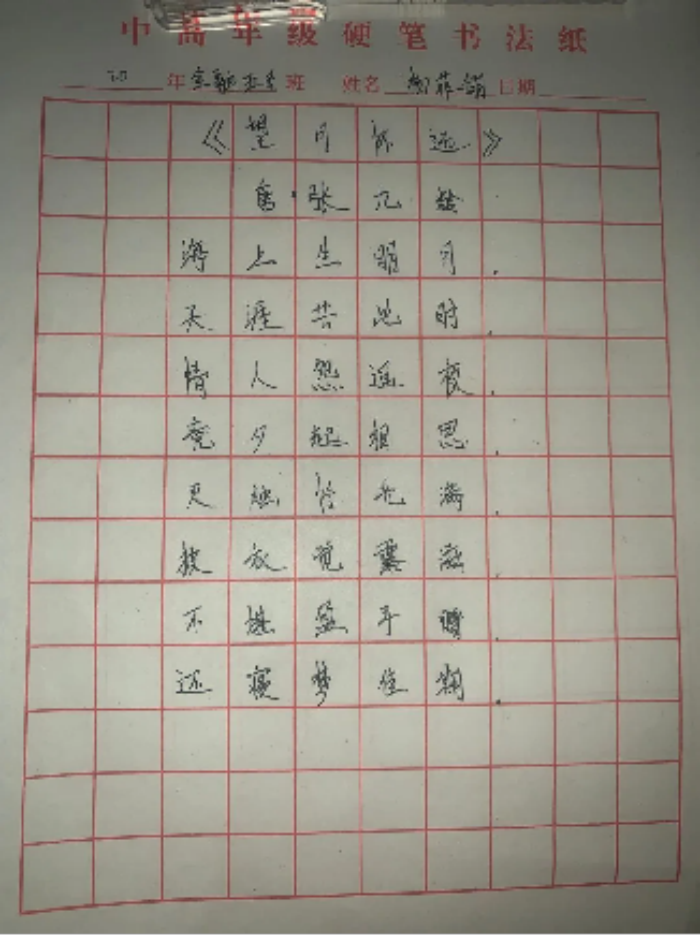 中高年级硬笔书法纸
年 班 姓名 日期
《望月怀远》
唐·张九龄
海上生明月,
天涯共此时.
情人怨遥夜,
竟夕起相思.
灭烛怜光满,
披衣觉露滋.
不堪盈手赠,
还寝梦佳期.